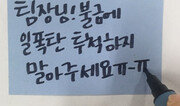 팀장님! 불금에
일폭탄 투척하지
말아주세요ㅠ-ㅠ